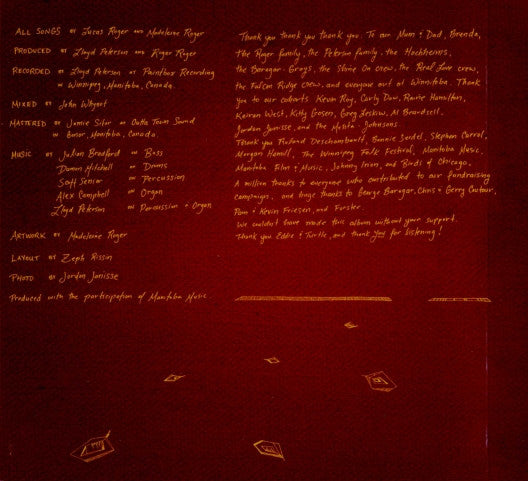 ALL SONGS BY Lucas Roger AND Madeleine Roger
PRODUCED BY Lloyd Peterson AND Roger Roger
RECORDED BY Lloyd Peterson AT Paintbox Recording
IN Winnipeg, Manitoba, Canada.
MIXED BY John Whynot
MASTERED BY Jamie Sitar AT Outta Town Sound
IN Manitoba, Canada.
MUSIC BY Julian Bradford ON Bass
Damon Mitchell ON Drums
Scott Senior ON Percussion
Alex Campbell ON Organ
Lloyd Peterson ON Percussion & Organ
ARTWORK BY Madeleine Roger
LAYOUT BY Zeph Rissin
PHOTO BY Jordan Janisse
Produced with the participation of Manitoba Music
Thank you thank you thank you: To our Mum & Dad, Brenda,
the Roger family, the Peterson family, the
the Baragar-Greys, the Stone On crew, the Real Love crew,
the Falcon Ridge crew, and everyone out at Winnitoba. Thank
you to our cohorts Kevin Roy, Carly Dow, Raine Hamilton,
Keiran West, Kitty Green, Greg Leskiw, Al Beardsell,
Jordan Janisse, and the Mosita Johnsons.
Thank you Rusland Deschambault, Bonnie Seidel, Stephen Carroll,
Morgan Hamill, The Winnipeg Folk Festival, Manitoba Music,
Manitoba Film & Music, Johnny Irion, and Birds of Chicago.
A million thanks to everyone who contributed to our fundraising
campaign, and huge thanks to George Baragar, Chris & Gerry Couture,
Pam & Kevin Friesen, and Forster.
We couldn't have made this album without your support.
Thank you Eddie & Turtle, and thank you for listening!